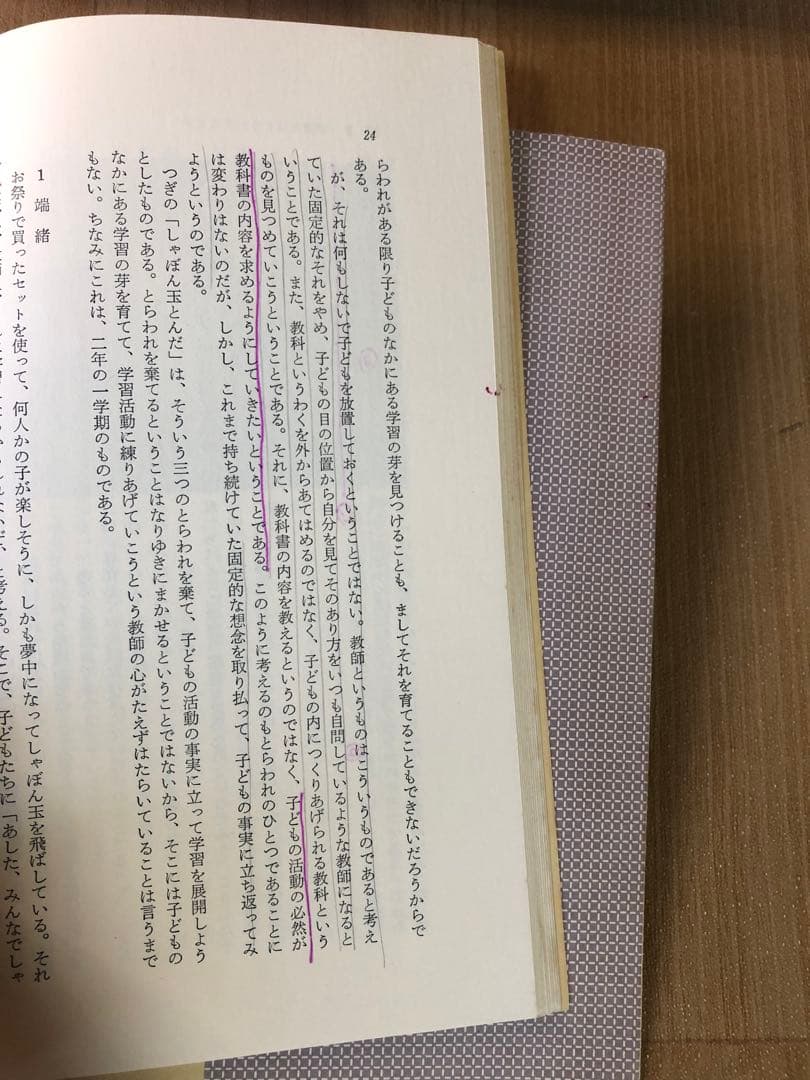 24
らわれがある限り子どものなかにある学習の芽を見つけることも、ましてそれを育てることもできないだろうからで
ある。
が、それは何もしないで子どもを放置しておくということではない。教師というものはこういうものであると考え
ていた固定的なそれをやめ、子どもの目の位置から自分を見てそのあり方をいつも自問しているような教師になると
いうことである。また、教科というわくを外からあてはめるのではなく、子どもの内につくりあげられる教科という
ものを見つめていこうということである。それに、教科書の内容を教えるというのではなく、子どもの活動の必然が
教科書の内容を求めるようにしていきたいということである。このように考えるのもとらわれのひとつであることに
は変わりはないのだが、しかし、これまで持ち続けていた固定的な想念を取り払って、子どもの事実に立ち返ってみ
ようというのである。
つぎの「しゃぼん玉とんだ」は、そういう三つのとらわれを棄て、子どもの活動の事実に立って学習を展開しよう
としたものである。とらわれを棄てるということはなりゆきにまかせるということではないから、そこには子どもの
なかにある学習の芽を育てて、学習活動に練りあげていこうという教師の心がたえずはたらいていることは言うまで
もない。ちなみにこれは、二年の一学期のものである。
1 端緒
お祭りで買ったセットを使って、何人かの子が楽しそうに、しかも夢中になってしゃぼん玉を飛ばしている。それ
と考える。そこで、子どもたちに「あした、みんなでしゃ